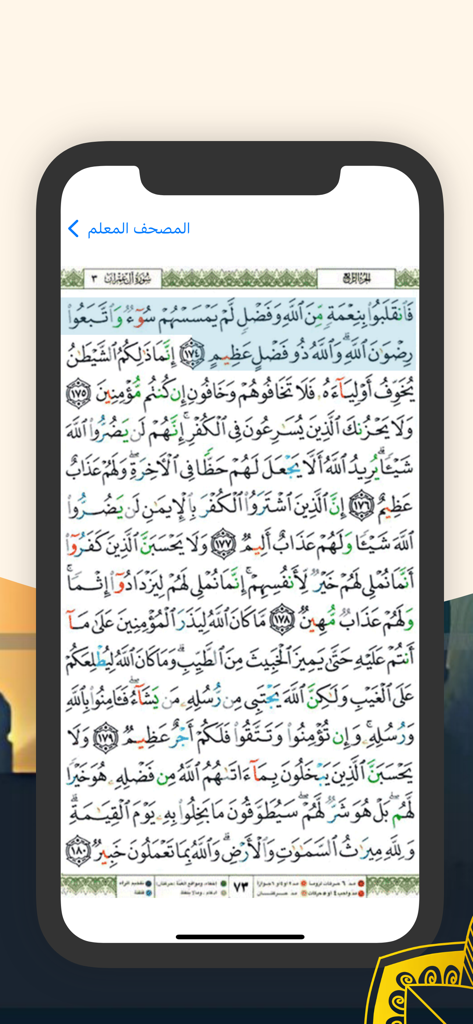 المصحف المعلم
سُورَةُ آلِ عِمْرَان ٣ الجزء الرابع
فَانقَلَبُوا۟ بِنِعْمَةٍ مِّنَ اللَّهِ وَفَضْلٍ لَّمْ يَمْسَسْهُمْ سُوٓءٌ وَاتَّبَعُوا۟
رِضْوَٰنَ اللَّهِ ۗ وَاللَّهُ ذُو فَضْلٍ عَظِيمٍ ١٧٤ إِنَّمَا ذَٰلِكُمُ الشَّيْطَٰنُ
يُخَوِّفُ أَوْلِيَآءَهُۥ فَلَا تَخَافُوهُمْ وَخَافُونِ إِن كُنتُم مُّؤْمِنِينَ ١٧٥
وَلَا يَحْزُنكَ الَّذِينَ يُسَٰرِعُونَ فِى الْكُفْرِ ۚ إِنَّهُمْ لَن يَضُرُّوا۟ اللَّهَ
شَيْـًٔا ۗ يُرِيدُ اللَّهُ أَلَّا يَجْعَلَ لَهُمْ حَظًّا فِى الْـَٔاخِرَةِ ۖ وَلَهُمْ عَذَابٌ
عَظِيمٌ ١٧٦ إِنَّ الَّذِينَ اشْتَرَوُا۟ الْكُفْرَ بِالْإِيمَٰنِ لَن يَضُرُّوا۟
اللَّهَ شَيْـًٔا وَلَهُمْ عَذَابٌ أَلِيمٌ ١٧٧ وَلَا يَحْسَبَنَّ الَّذِينَ كَفَرُوٓا۟
أَنَّمَا نُمْلِى لَهُمْ خَيْرٌ لِّأَنفُسِهِمْ ۚ إِنَّمَا نُمْلِى لَهُمْ لِيَزْدَادُوٓا۟ إِثْمًا ۚ
وَلَهُمْ عَذَابٌ مُّهِينٌ ١٧٨ مَّا كَانَ اللَّهُ لِيَذَرَ الْمُؤْمِنِينَ عَلَىٰ مَآ
أَنتُمْ عَلَيْهِ حَتَّىٰ يَمِيزَ الْخَبِيثَ مِنَ الطَّيِّبِ ۗ وَمَا كَانَ اللَّهُ لِيُطْلِعَكُمْ
عَلَى الْغَيْبِ وَلَٰكِنَّ اللَّهَ يَجْتَبِى مِن رُّسُلِهِۦ مَن يَشَآءُ ۖ فَـَٔامِنُوا۟ بِاللَّهِ
وَرُسُلِهِۦ ۚ وَإِن تُؤْمِنُوا۟ وَتَتَّقُوا۟ فَلَكُمْ أَجْرٌ عَظِيمٌ ١٧٩ وَلَا
يَحْسَبَنَّ الَّذِينَ يَبْخَلُونَ بِمَآ ءَاتَىٰهُمُ اللَّهُ مِن فَضْلِهِۦ هُوَ خَيْرًا
لَّهُم ۖ بَلْ هُوَ شَرٌّ لَّهُمْ ۖ سَيُطَوَّقُونَ مَا بَخِلُوا۟ بِهِۦ يَوْمَ الْقِيَٰمَةِ ۗ
وَلِلَّهِ مِيرَٰثُ السَّمَٰوَٰتِ وَالْأَرْضِ ۗ وَاللَّهُ بِمَا تَعْمَلُونَ خَبِيرٌ ١٨٠
٧٣